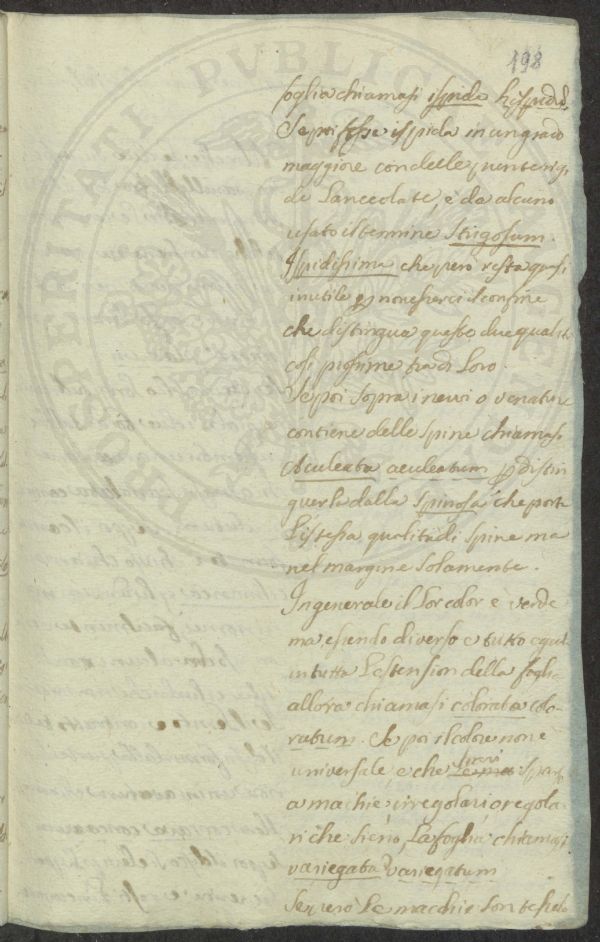 198
foglia chiamasi ispida hispid
Se poi fosse ispida in un grado
maggiore con delle punte rigi
de Lanceolate, è da alcuno
usato il termine Strigosum.
Ispidissima che però resta quasi
inutile p non esserci il confine
che distingua queste due qualit
così prossime tra di Loro.
Se poi sopra i nervi o venature
contiene delle Spine chiamasi
Aculeata aculeatum p distin
guerla dalla Spinosa che porta
L'istessa qualità di Spine ma
nel margine Solamente.
In generale il Lor color è verde
ma essendo diverso e tutto egual
in tutta L'estension della fogli
allora chiamasi colorata colo-
ratum. Se poi il colore non è
universale, e che spars
a machie irregolari, o regola
ri che sieno, La foglia chiamasi
variegata Variegatum
Se però Le macchie son